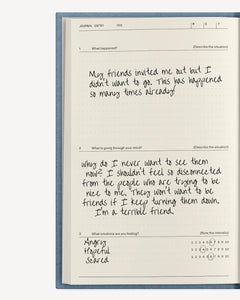 JOURNAL ENTRY
1 What happened? (Describe the situation)
My friends invited me out but I
didn't want to go. This has happened
so many times already!
2 What is going through your mind? (Describe the situation)
Why do I never want to see them
now? I shouldn't feel so disconnected
from the people who are trying to be
nice to me. They won't want to be
friends if I keep turning them down.
I'm a terrible friend.
3 What emotions are you feeling? (Rate the intensity)
Angry 1 2 3 4 5 6 7 8 9 10
Hopeful 1 2 3 4 5 6 7 8 9 10
Scared 1 2 3 4 5 6 7 8 9 10